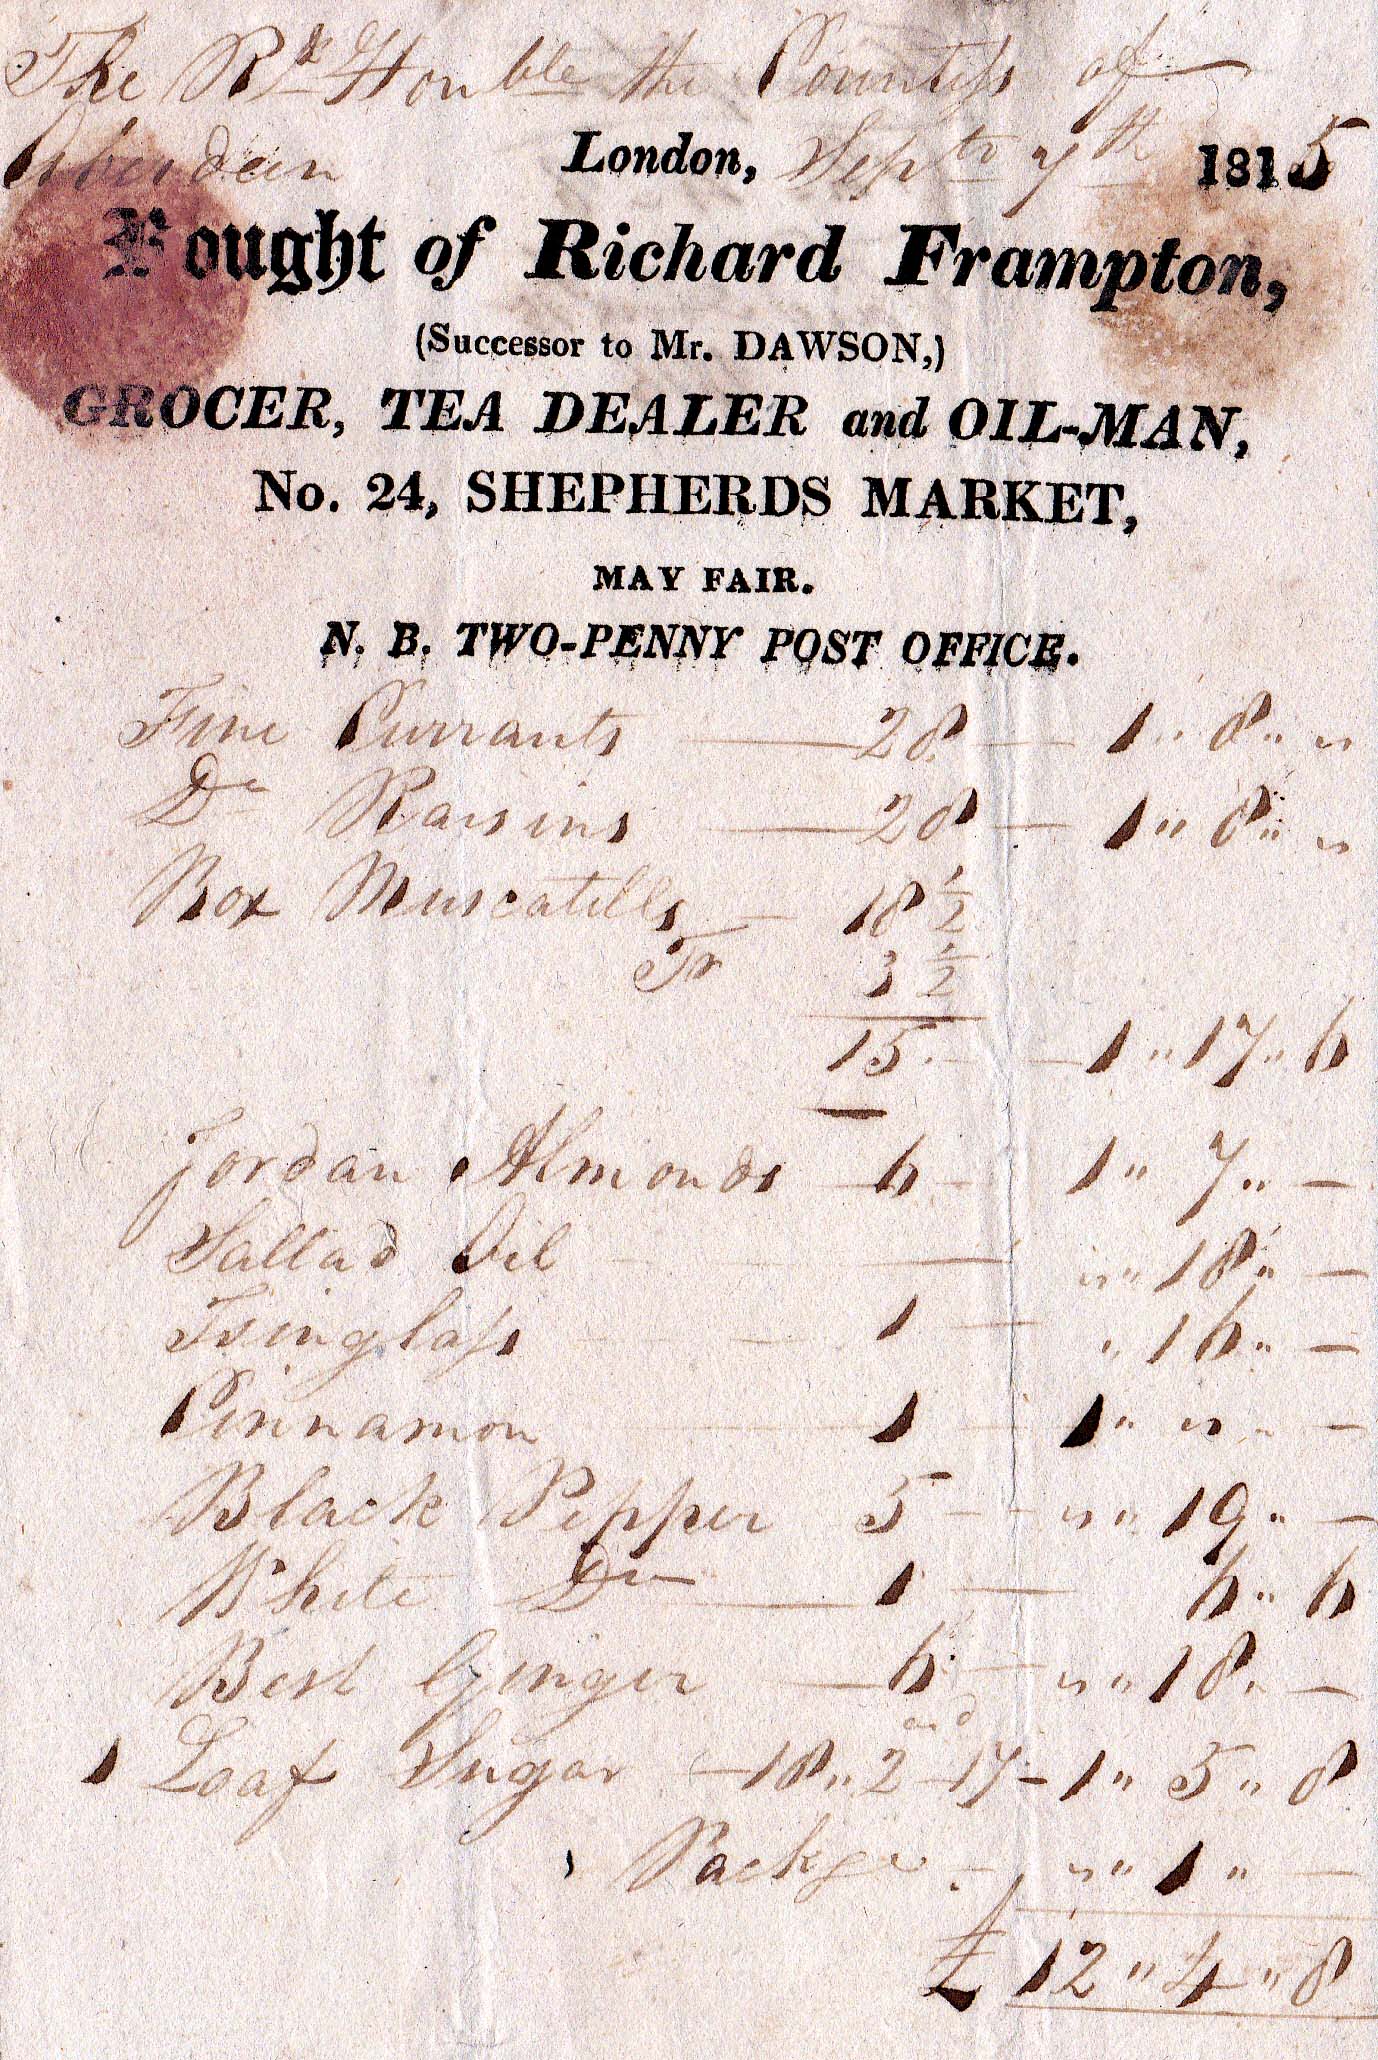 The Rt Honble the Countess of
Aberdeen
London, Septr 7th 1815
Bought of Richard Frampton,
(Successor to Mr. DAWSON,)
GROCER, TEA DEALER and OIL-MAN,
No. 24, SHEPHERDS MARKET,
MAY FAIR.
N. B. TWO-PENNY POST OFFICE.
Fine Currants — 28 — 1 " 8 " "
Do Raisins — 28 — 1 " 8 " "
Box Muscatills — 18 1/2
Tr 3 1/2
15 — 1 " 17 " 6
Jordan Almonds — 6 — 1 " 7 " —
Sallad Oil — " " 18 " —
Isinglass — 1 — " 16 " —
Cinnamon — 1 — 1 " " " —
Black Pepper 5 — " " 19 " —
White Do — 1 — 6 " 6
Best Ginger — 6 — " " 18 " —
1 Loaf Sugar — 18 " 2 — 17d — 1 " 5 " 8
Packge — " " 1 " —
£ 12 " 4 " 8